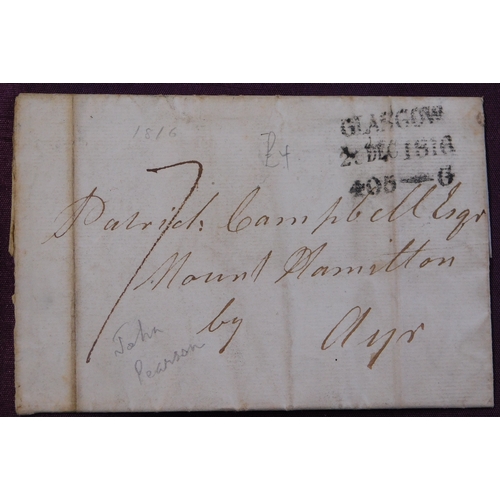 1816
£4
GLASGOW
2 DEC 1816
405—G
7
Patrick Campbell Esqr
Mount Hamilton
by Ayr
John
Pearson